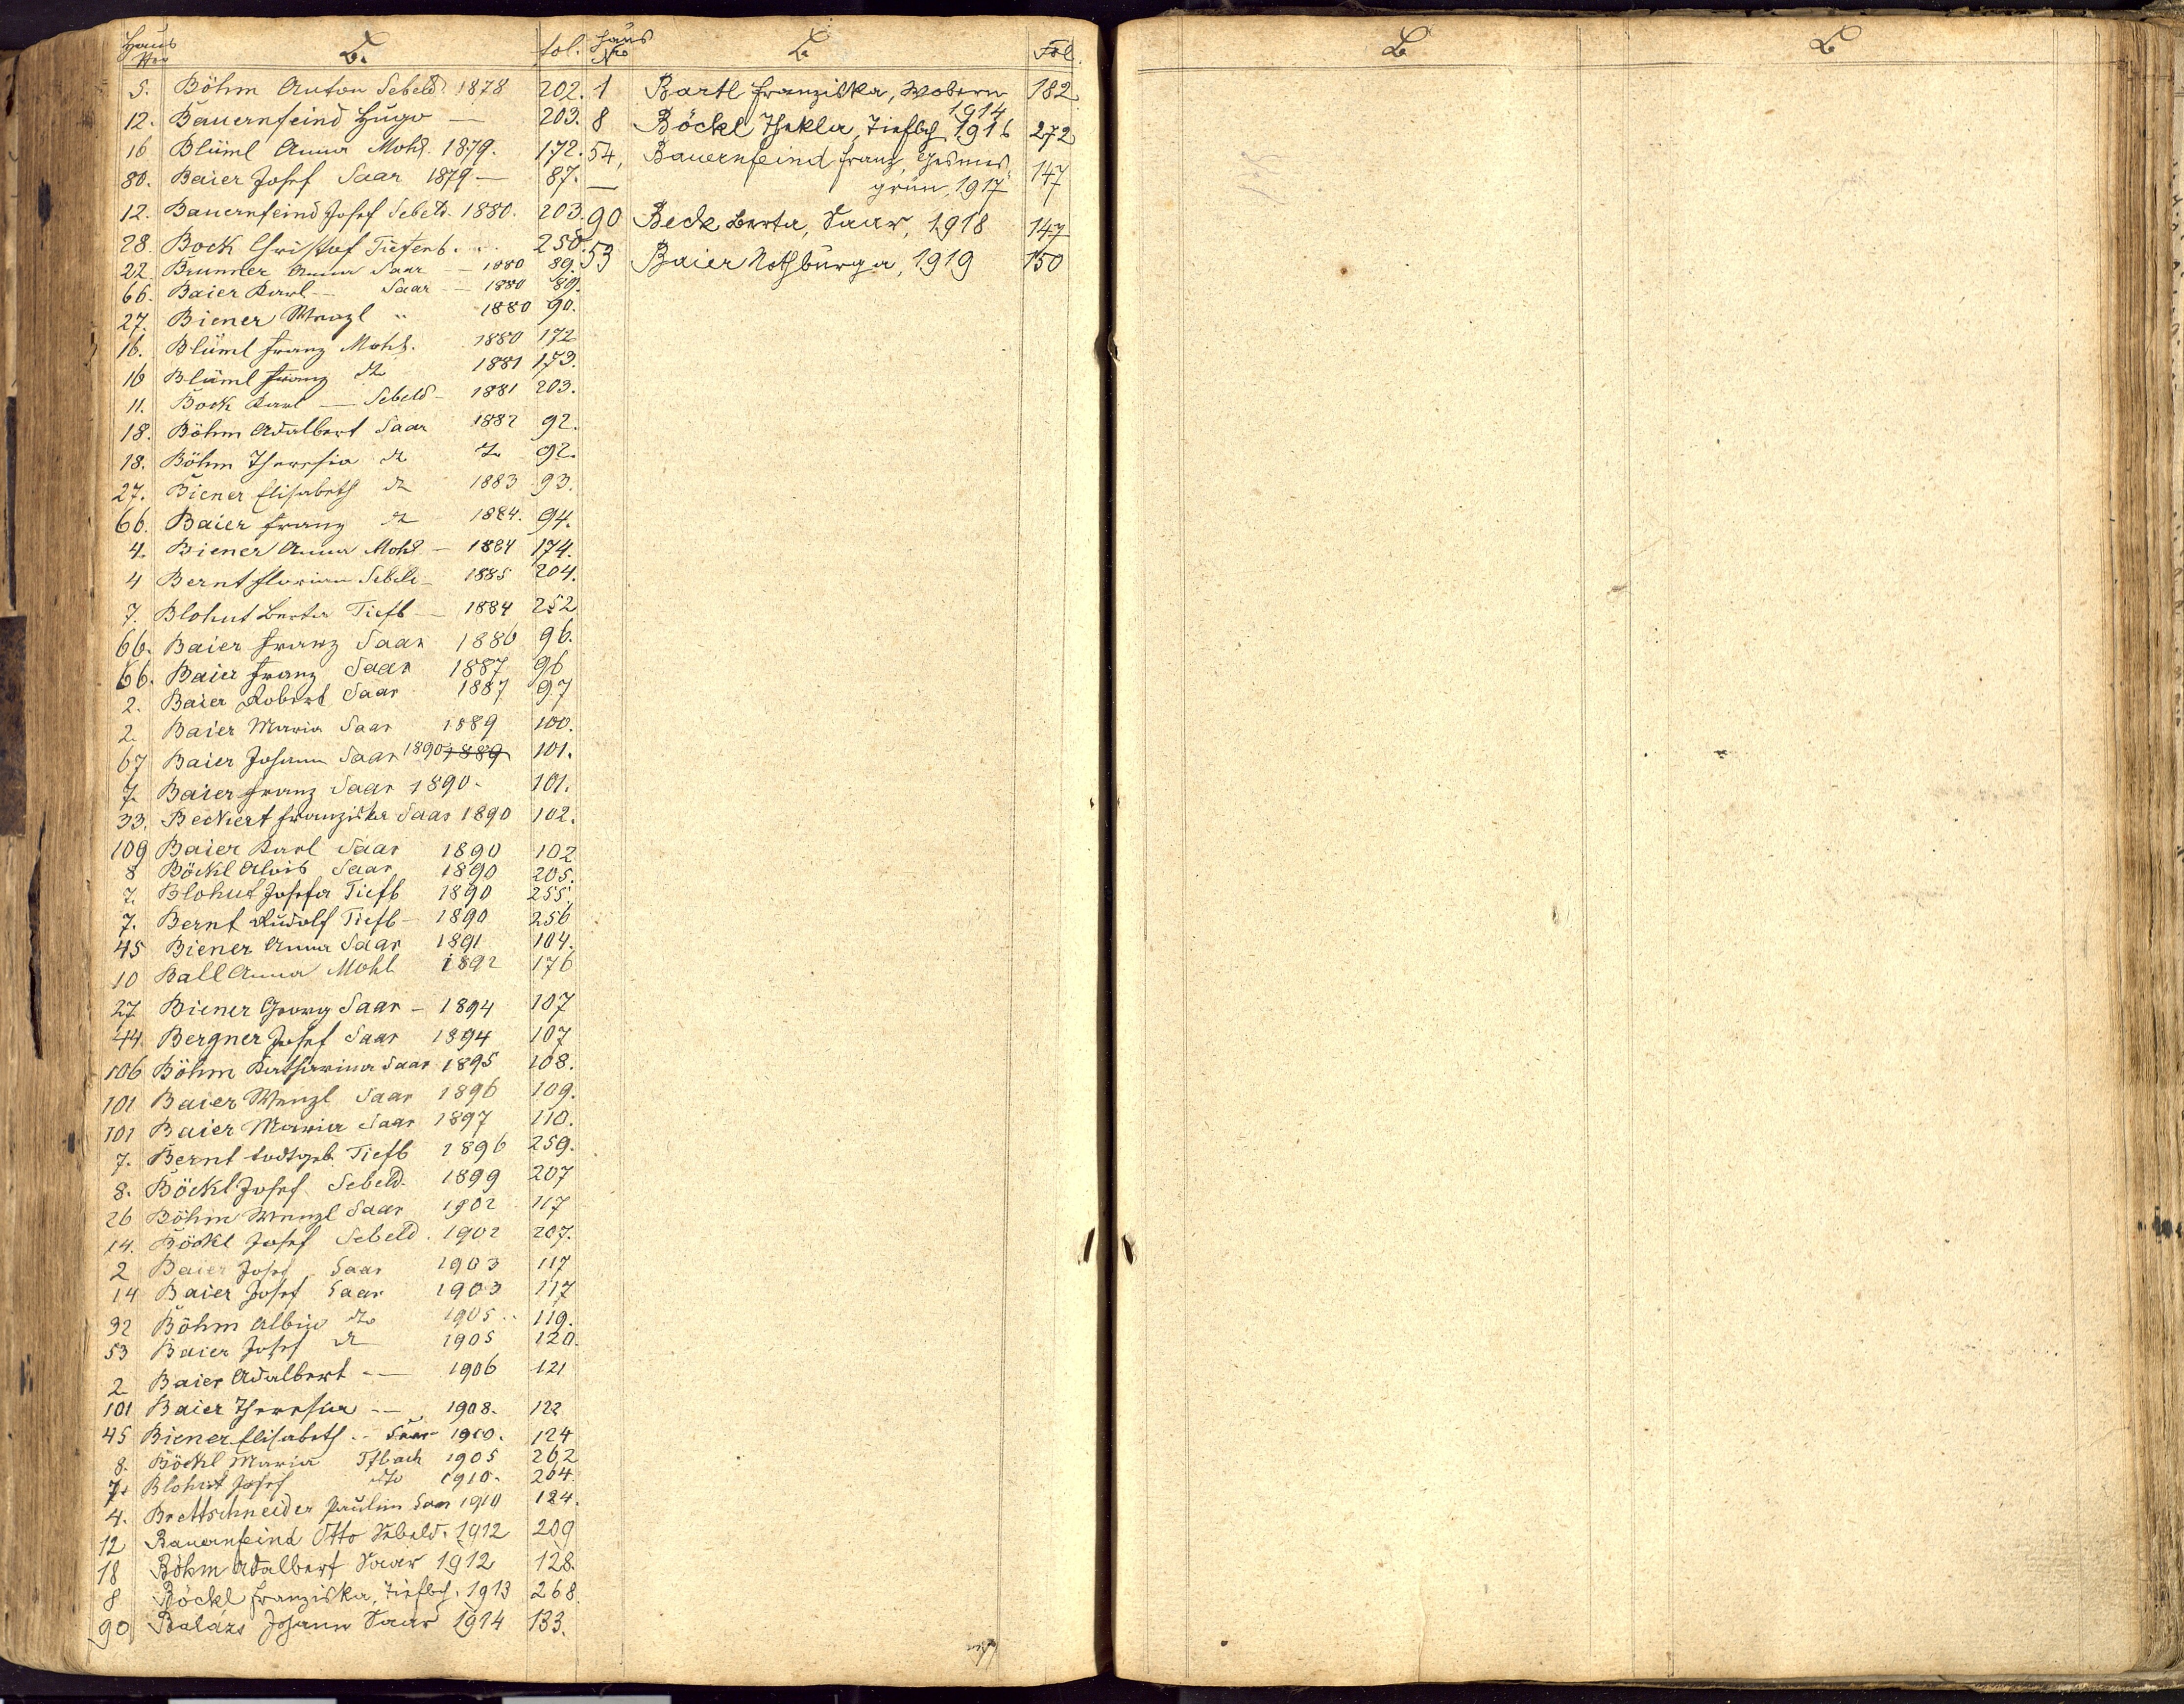 Haus
Nro B. fol.
5. Böhm Anton Sebeld. 1878 202.
12. Bauernfeind Hugo — 203.
16 Blüml Anna Mohl. 1879. 172.
80. Baier Josef Saar 1879 — 87.
12. Bauernfeind Josef Sebeld. 1880. 203.
28. Bock Christof Tiefenb. 250.
22. Brunner Anna Saar — 1880 89.
66. Baier Karl — Saar — 1880 89.
27. Biener Wenzl " 1880 90.
16. Blüml Franz Mohl. 1880 172
16 Blüml Franz dto 1881 173.
11. Bock Karl — Sebeld — 1881 203.
18. Böhm Adalbert Saar 1882 92.
18. Böhm Theresia dto dto 92.
27. Biener Elisabeth dto 1883 93.
66. Baier Franz dto 1884. 94.
4. Biener Anna Mohl — 1884 174.
4 Bernt Florian Sebeld — 1885 204.
7. Blohut Berta Tiefb — 1884 252
66. Baier Franz Saar 1886 96.
66. Baier Franz Saar 1887 96
2. Baier Robert Saar 1887 97
2. Baier Maria Saar 1889 100.
67 Baier Johann Saar 1890 1889 101.
7. Baier Franz Saar 1890. 101.
33. Beckert Franziska Saar 1890 102.
109 Baier Karl Saar 1890 102
8 Böckl Alois Saar 1890 205.
7. Blohut Josefa Tiefb 1890 255.
7. Bernt Rudolf Tiefb — 1890 256
45 Biener Anna Saar 1891 104.
10 Ball Anna Mohl 1892 176
27 Biener Georg Saar — 1894 107
44. Bergner Josef Saar 1894 107
106 Böhm Katharina Saar 1895 108.
101 Baier Wenzl Saar 1896 109.
101 Baier Maria Saar 1897 110.
7. Bernt todtgeb. Tiefb 1896 259.
8. Böckl Josef Sebeld. 1899 207
26 Böhm Wenzl Saar 1902 117
14. Böckl Josef Sebeld. 1902 207.
2 Baier Josef Saar 1903 117
14 Baier Josef Saar 1903 117
92 Böhm Albin dto 1905 119.
53 Baier Josef dto 1905 120.
2 Baier Adalbert — 1906 121
101 Baier Theresia — 1908. 122
45 Biener Elisabeth Saar 1910. 124
8. Böckl Maria Tfbach 1905 262
7. Blohut Josef dto 1910. 264.
4. Brettschneider Paulin Saar 1910 124.
12 Bauernfeind Otto Sebeld. 1912 209
18 Böhm Adalbert Saar 1912 128.
8 Böckl Franziska, Tiefbch. 1913 268.
90 Balázs Johann Saar 1914 133.
Haus
Nro B. Fol.
1 Bartl Franziska, Wobern 182
1914
8 Böckl Thekla, Tiefbch 1916 272
54, Bauernfeind Franz, Gesmes
grün, 1917 147
90 Beck Berta, Saar, 1918 147
53 Baier Nothburga, 1919 150
B B